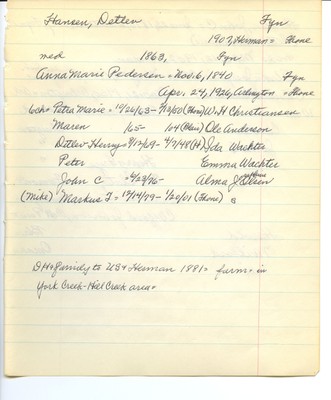 Hansen, Detlev Fyn
1907, Herman = Home
med 1863, Fyn
Anna Marie Pedersen = Nov. 6, 1840 Fyn
Apr. 24, 1926, Arlington = Home
6ch = Petra Marie = 10/26/63 - (Home) W. H Christiansen
Maren /65- Ole Anderson
Detlev Henry = - 4/7/48 (H) Ida Wachter
Peter Emma Wachter
John C = Alma J. Olsen
(Mike) Markus T = 12/14/79 - 1/20/01 (Home) s
DH & family to US & Herman 1881 = farm = in
York Creek - Hill Creek area =